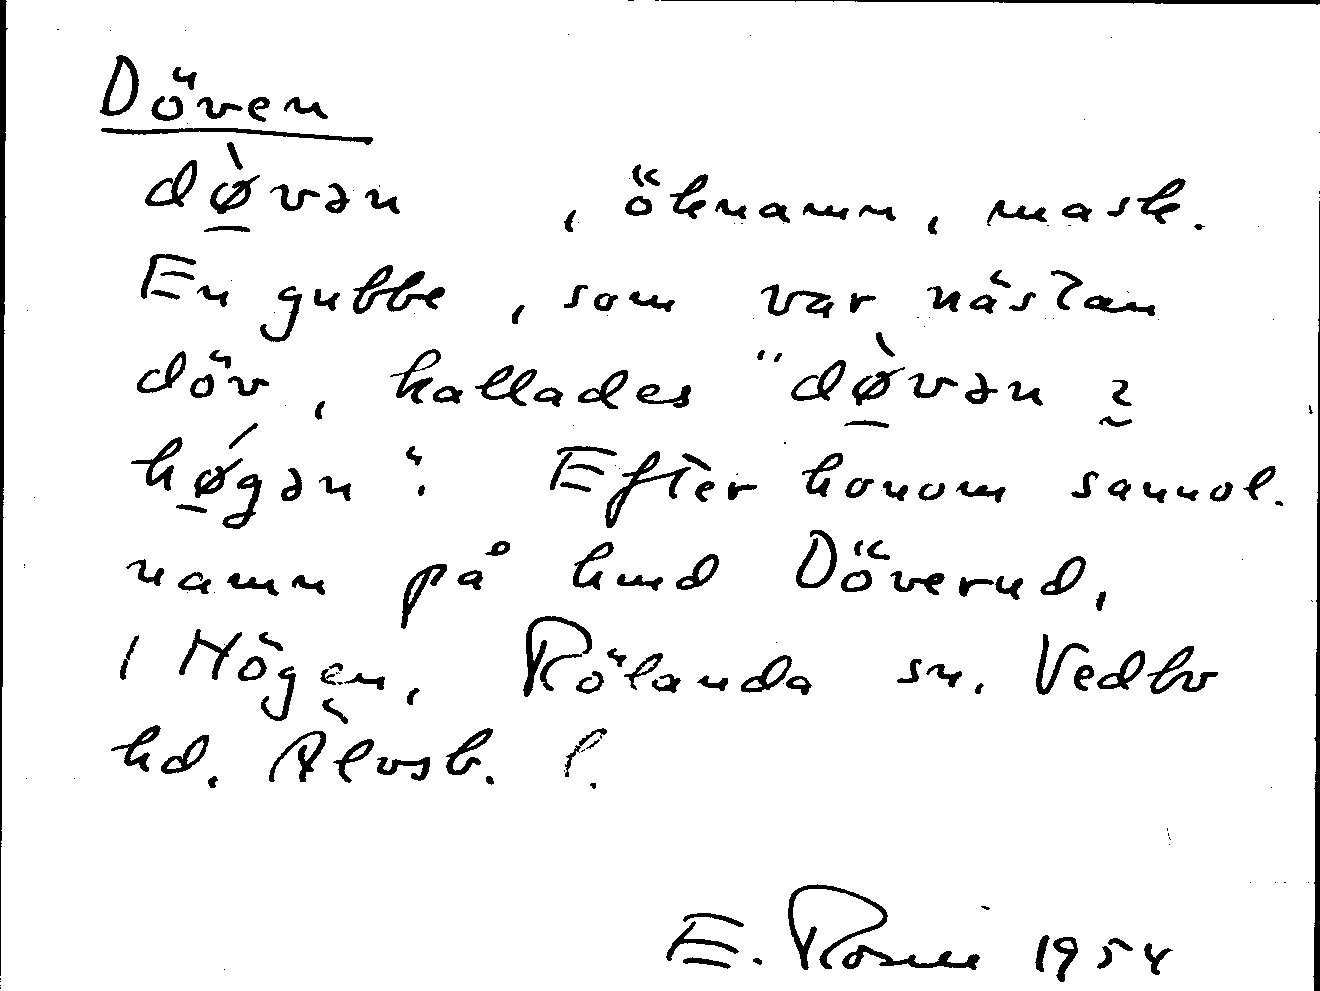 Döven
dø̠̀vən , öknamn, mask.
En gubbe, som var nästan
döv, kallades "dø̠̀vən
hǿ̠gən". Efter honom sannol.
namn på hmd Döverud,
1 Högen, Rölanda sn. Vedbo
hd. Älvsb. l.
E. 1954